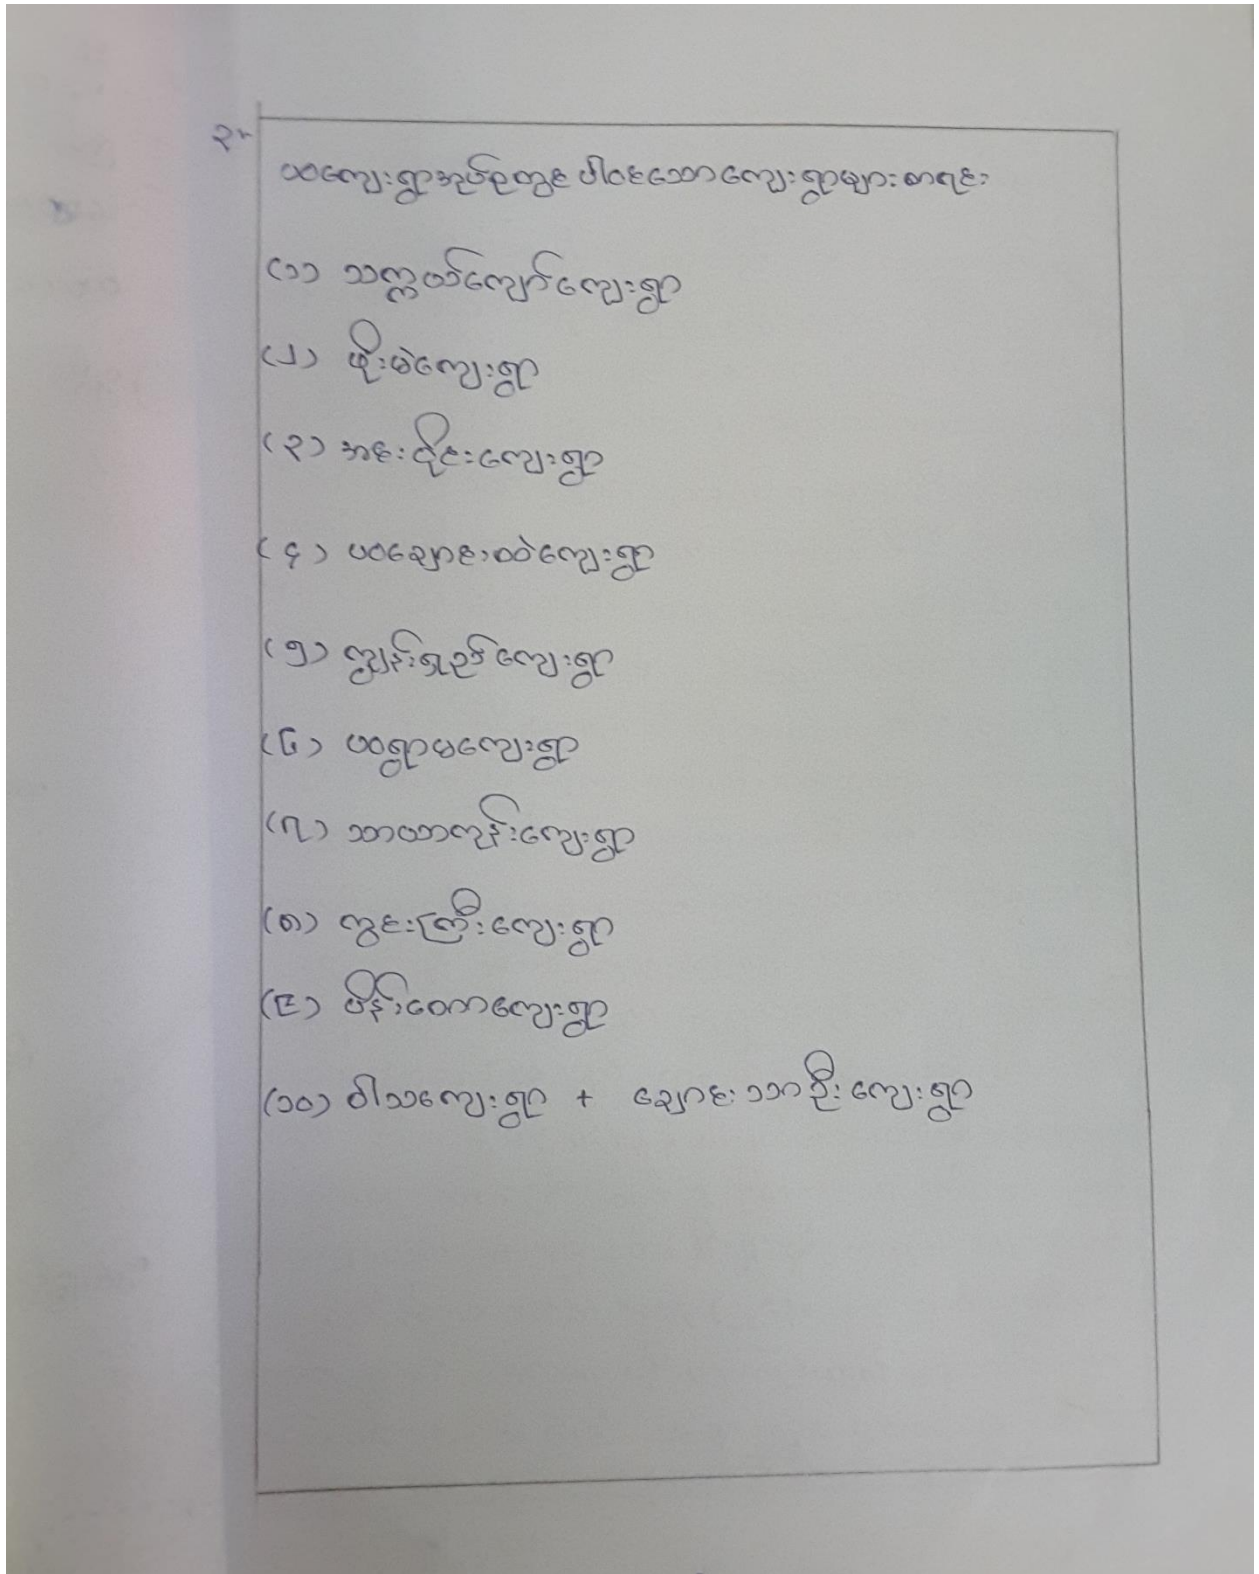 ၃။
ပဝကျေးရွာအုပ်စုတွင် ပါဝင်သောကျေးရွာများစာရင်း
(၁) သက္ကယ်ကျော်ကျေးရွာ
(၂) ဖိုးမဲကျေးရွာ
(၃) အင်းဝိုင်းကျေးရွာ
(၄) ပဝချောင်းထဲကျေးရွာ
(၅) ကျွန်းရှည်ကျေးရွာ
(၆) ပဝရွာမကျေးရွာ
(၇) သာယာကုန်းကျေးရွာ
(၈) ကွင်းကြီးကျေးရွာ
(၉) ပိန္နဲတောကျေးရွာ
(၁၀) ဝါသကျေးရွာ + ချောင်းသာဦးကျေးရွာ